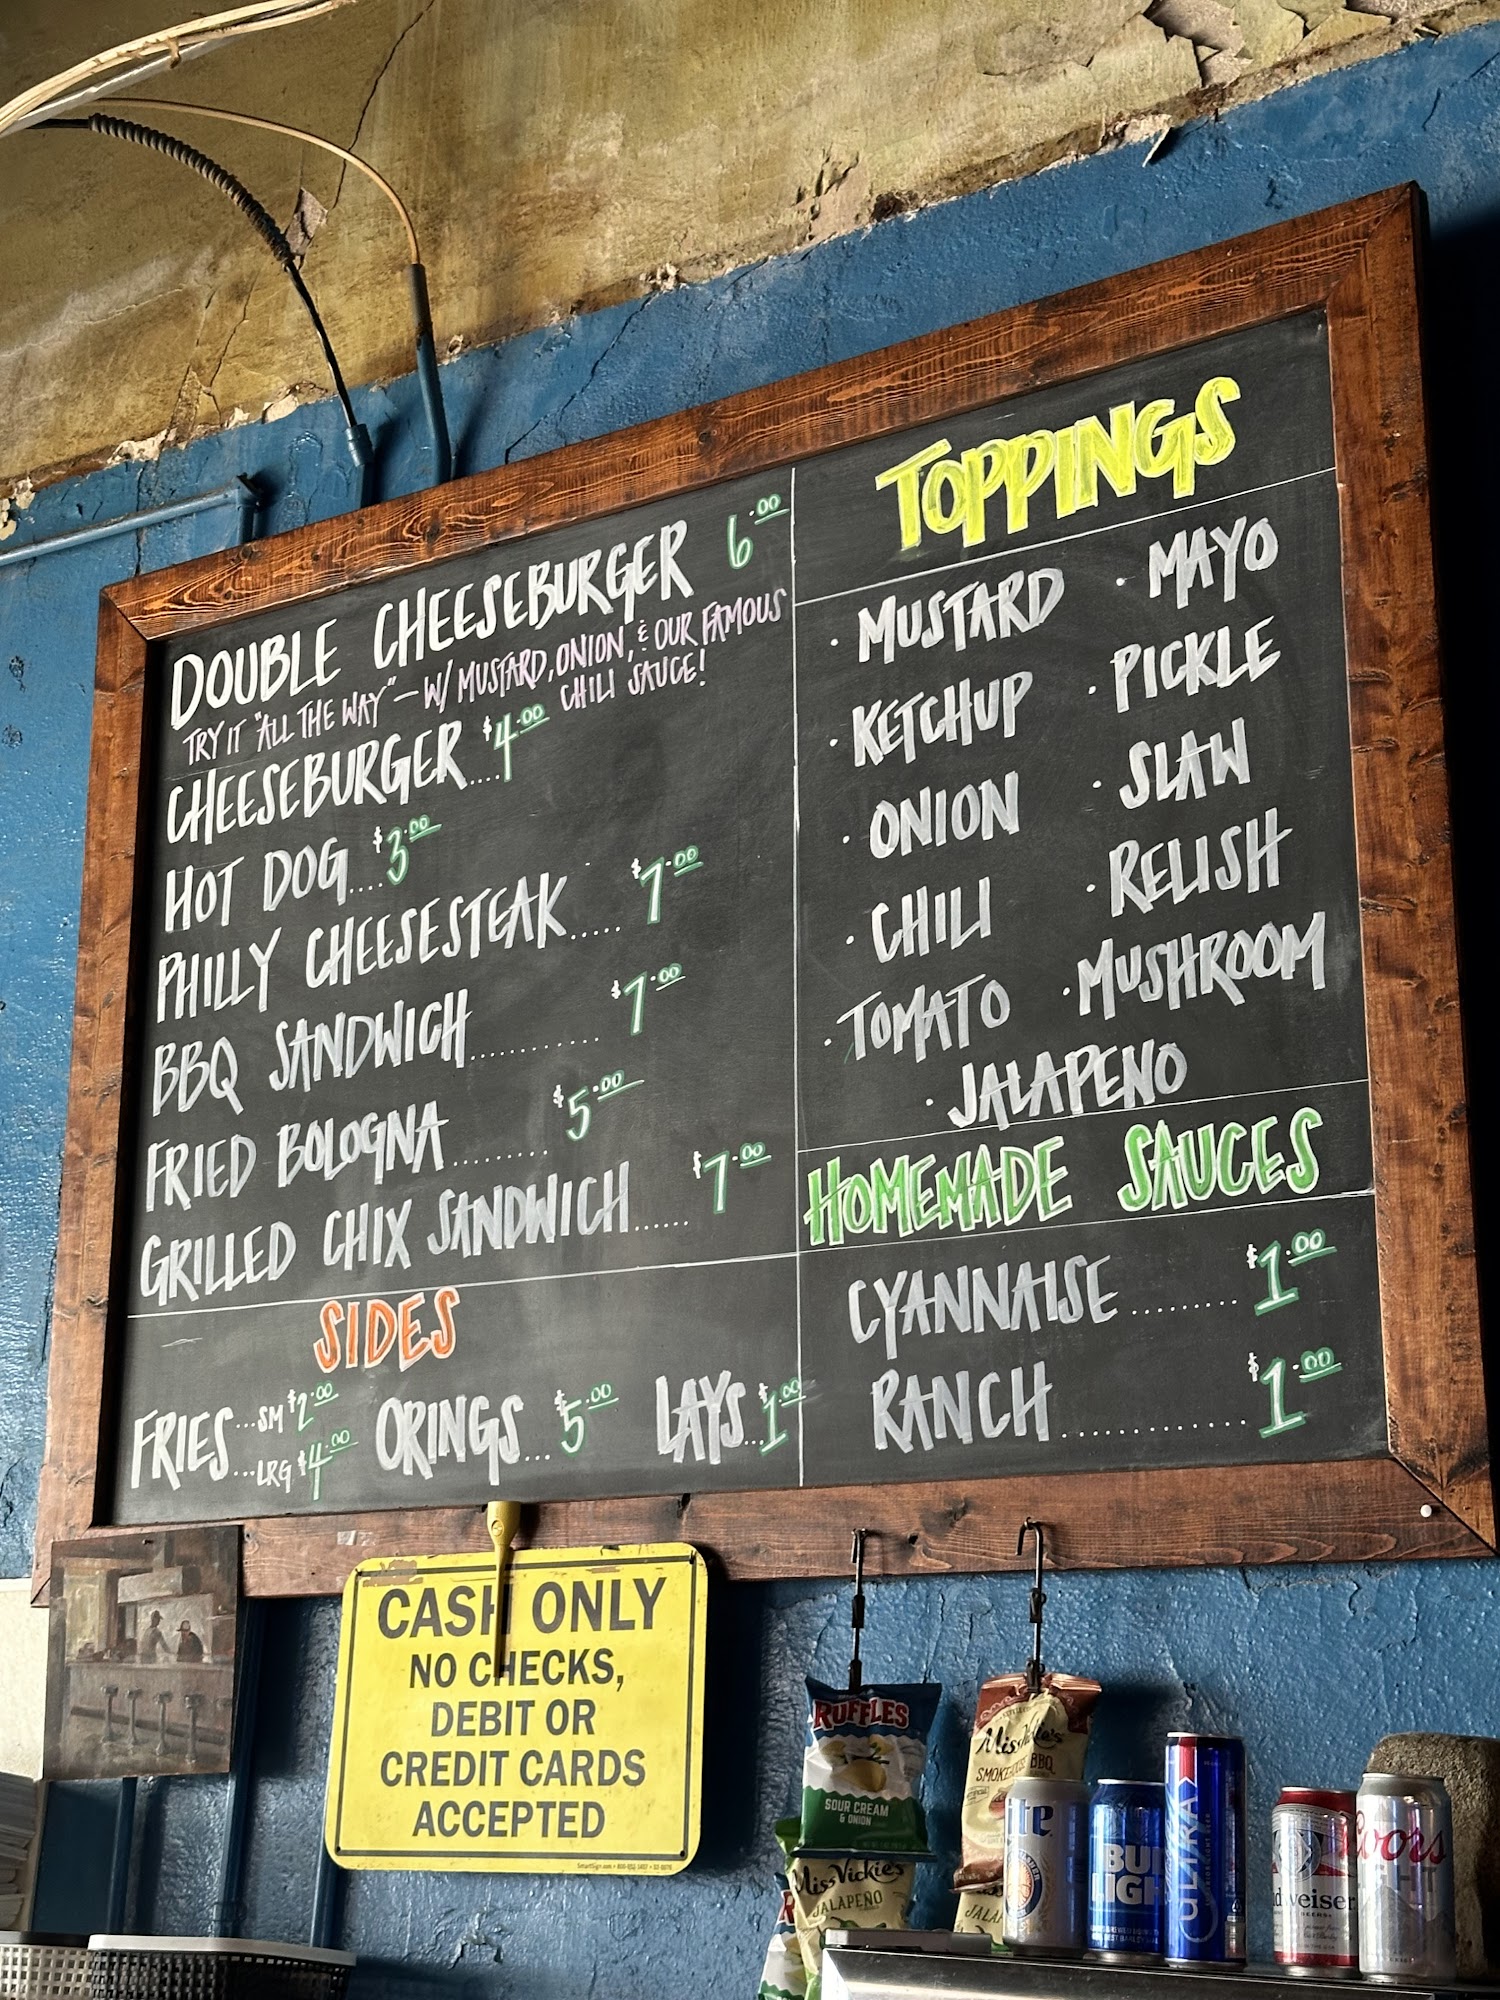 DOUBLE CHEESEBURGER 6.00
TRY IT "ALL THE WAY" — W/ MUSTARD, ONION, & OUR FAMOUS
CHILI SAUCE!
CHEESEBURGER....$4.00
HOT DOG....$3.00
PHILLY CHEESESTEAK.....$7.00
BBQ SANDWICH............$7.00
FRIED BOLOGNA.........$5.00
GRILLED CHIX SANDWICH......$7.00
SIDES
FRIES...SM $2.00
...LRG $4.00
ORINGS...$5.00
LAYS...$1.00
TOPPINGS
· MUSTARD · MAYO
· KETCHUP · PICKLE
· ONION · SLAW
· CHILI · RELISH
· TOMATO · MUSHROOM
· JALAPENO
HOMEMADE SAUCES
CYANNAISE.........$1.00
RANCH............$1.00
CASH ONLY
NO CHECKS,
DEBIT OR
CREDIT CARDS
ACCEPTED
RUFFLES
SOUR CREAM
& ONION
Miss Vickie's
JALAPEÑO
Miss Vickie's
SMOKEHOUSE BBQ
JALA
ite
BUD
LIGHT
ULTRA
dweiser
Coors
LIGHT